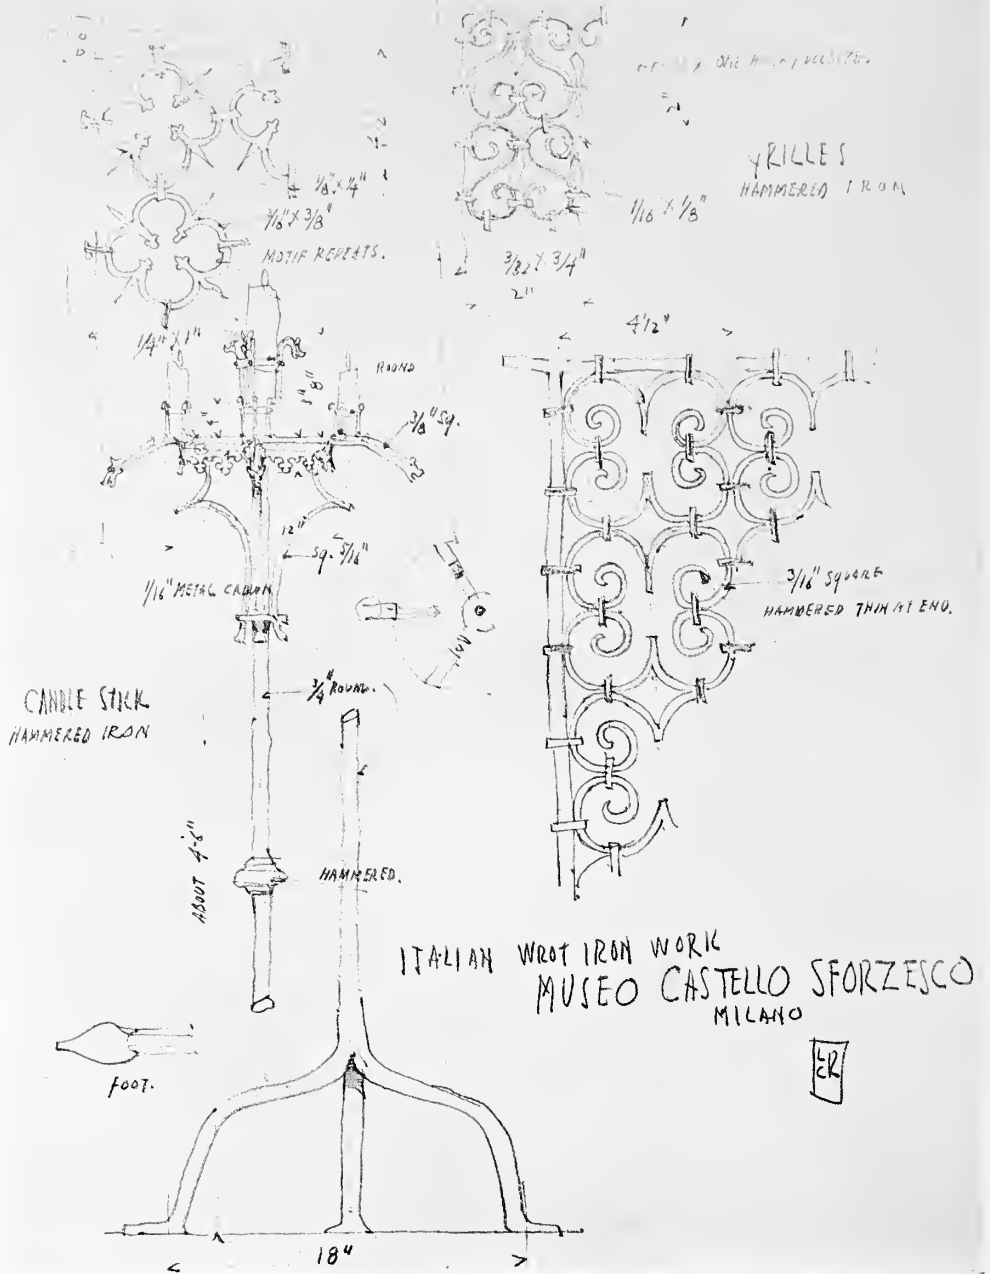 GRILLES
HAMMERED IRON
1/8" X 1/4"
3/16" X 3/8"
MOTIF REPEATS.
1/16 X 1/8"
3/32 X 3/4"
2"
1/4" X 1"
4 1/2"
ROUND
8"
4"
3/8" SQ.
12"
SQ. 5/16"
1/16" METAL
3/16" SQUARE
HAMMERED THIN AT END.
3/4" ROUND.
CANDLE STICK
HAMMERED IRON
ABOUT 4'-6"
HAMMERED.
ITALIAN WROT IRON WORK
MUSEO CASTELLO SFORZESCO
MILANO
LCR
FOOT.
18"